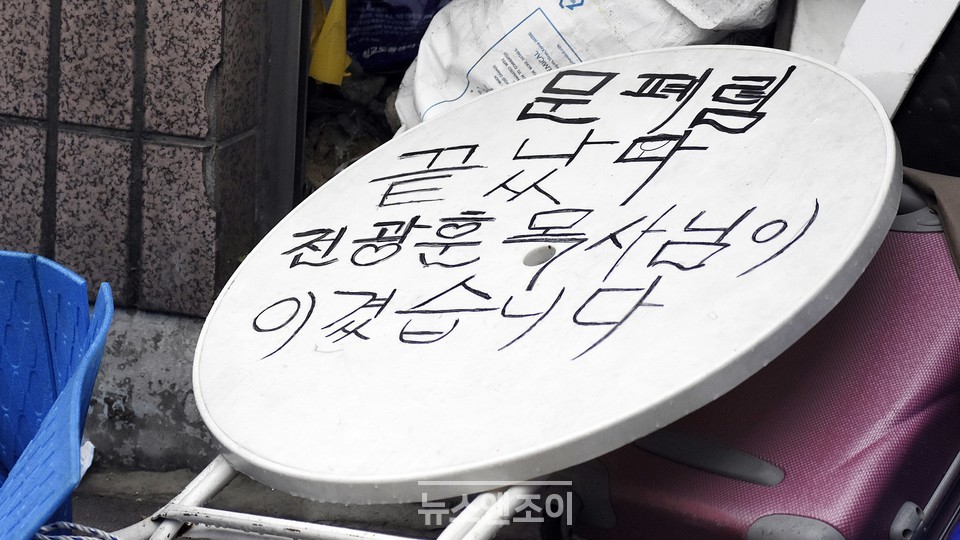 문폐렴
끝났다
전광훈 목사님이
이겼습니다
뉴스앤조이